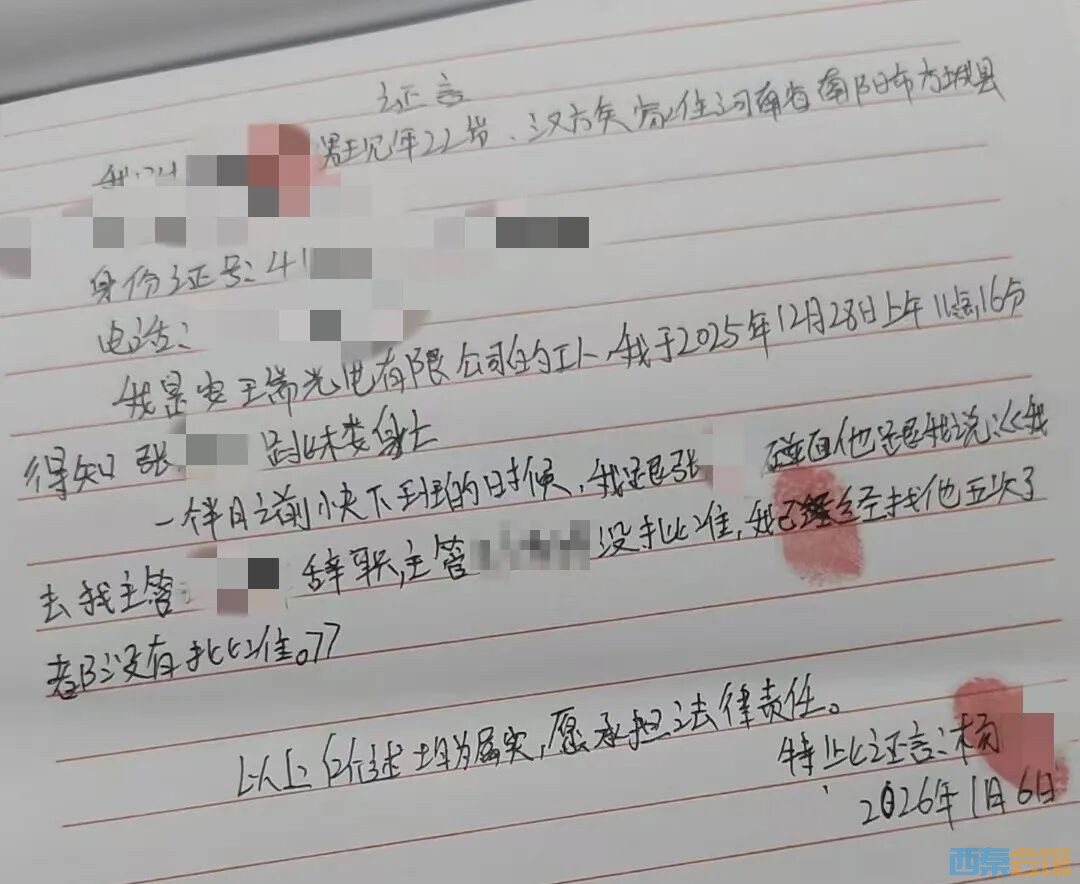 证言
我叫 男现年22岁、汉族家住河南省南阳市方城县
身份证号:41
电话:
我是安王瑞光电有限公司的工人、我于2025年12月28日上午11点16分
得知张 跳楼 身亡
一个半月之前小夹下班的时候,我跟张 碰面他跟我说:《我
去找主管 辞职,主管 没批准,我已经经找他五次了
都没有批准。》
以上所述均为属实,愿承担法律责任。
特此证言:杨
2026年1月6日
西秦会馆